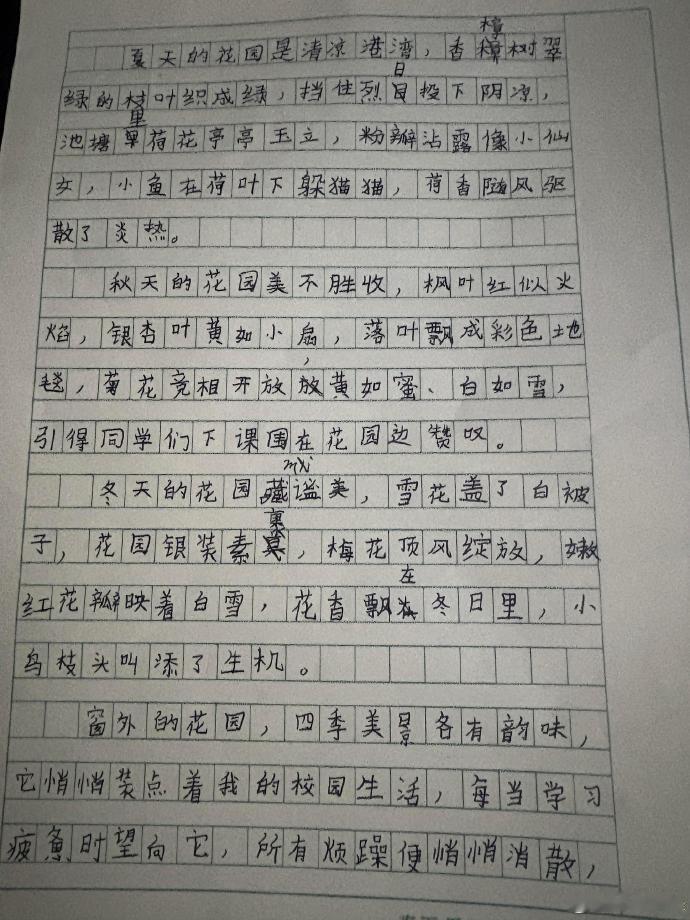 夏天的花园是清凉港湾，香樟树翠
绿的枝叶织成绿，挡住烈日投下阴凉，
池塘里荷花亭亭玉立，粉瓣沾露像小仙
女，小鱼在荷叶下躲猫猫，荷香随风驱
散了炎热。
秋天的花园美不胜收，枫叶红似火
焰，银杏叶黄如小扇，落叶飘成彩色地
毯，菊花竞相开放，黄如蜜、白如雪，
引得同学们下课围在花园边赞叹。
冬天的花园谧美，雪花盖了白被
子，花园银装素裹，梅花顶风绽放，嫩
红花瓣映着白雪，花香飘在冬日里，小
鸟枝头叫添了生机。
窗外的花园，四季美景各有韵味，
它悄悄装点着我的校园生活，每当学习
疲惫时望向它，所有烦躁便悄悄消散，